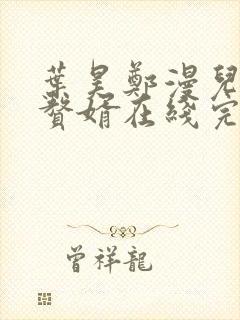 葉昊鄭漫兒
贅婿在綫完
曾祥龍